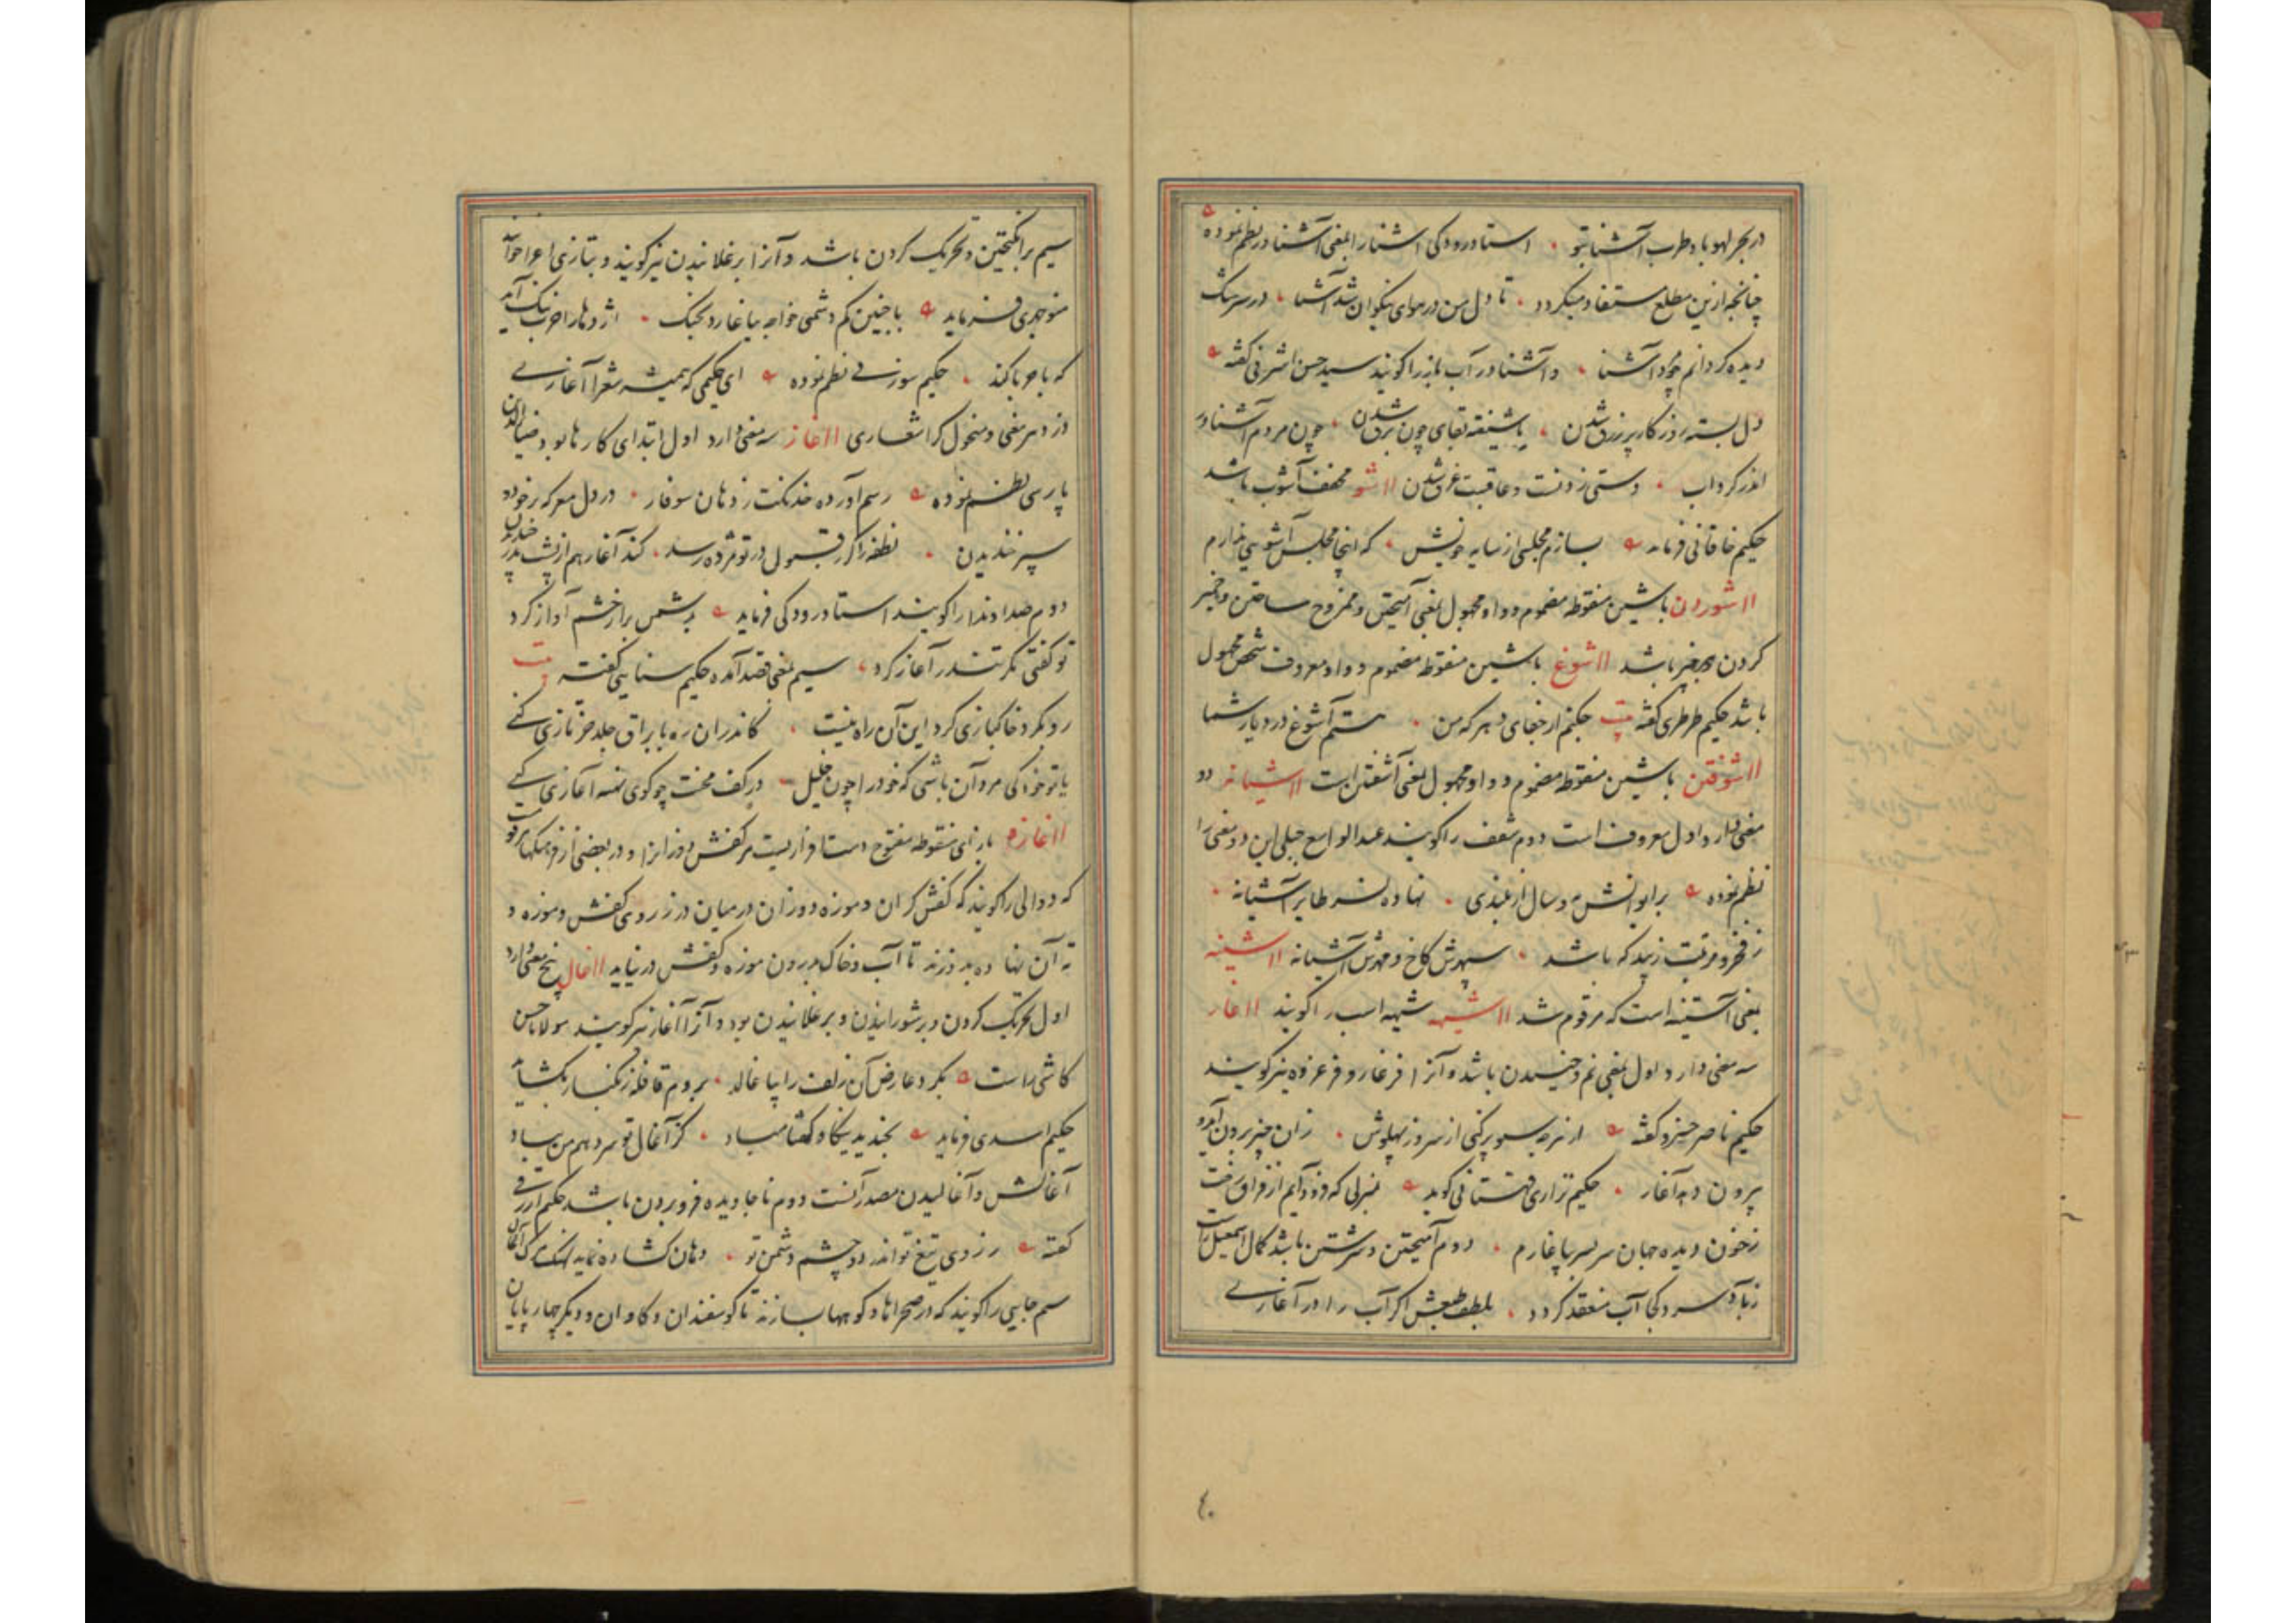 در بحر لهو باد و طرب آشنا بتو استاد رودکی اشنا را بمعنی آشنا در نظم نموده
چنانچه ازین مطلع مستفاد میکردد تا دل من در هوای نیکوان شد آشنا در سرشک
دیده کردانم چو مرد آشنا و آشنا در آب باز را کویند سید حسن اشرفی کفته
دل بسته روزکار پر زرق شدن یا شیفته بقای چون برق شدن چون مردم آشنا
اندر کرداب دستی زدنست و عاقبت غرق شدن ااشو مخفف آشوب باشد
حکیم خاقانی فرماید بسازم مجلسی از سایه خویش که اینجا مجلس آشوبی ندارم
ااشوردن با شین منقوطه مضموم و واو مجهول بمعنی آمیختن و ممزوج ساختن و خمیر
کردن باشد ااشوغ با شین منقوطه مضموم و واو معروف شخص مجهول
باشد حکیم طرطری کفته بیت چکنم از جفای دهر که من هستم آشوغ در دیار شما
ااشوفتن با شین منقوطه مضموم و واو مجهول بمعنی آشفتن است ااشیانه دو
معنی دارد اول معروف است دوم سقف را کویند عبدالواسع جبلی این دو معنی را
نظم نموده بر ایوانش مه و سال از بلندی نهاده نسر طایر آشیانه
ز فخر و مرتبت زیبد که باشد سپهرش کاخ و عرش آشیانه ااشینه
بمعنی آستینه است که مرقوم شد ااشیهه شیهه اسب را کویند ااغار
سه معنی دارد اول بمعنی نم و خیسیدن باشد و آنرا فرغار و فرغرده نیز کویند
حکیم ناصر خسرو کفته از هرچه سبو پر کنی از سر وز پهلوش زان چیز برون آید و
بیرون دهد آغار حکیم نزاری قهستانی کوید بمنزلی که فرود آیم از فراق رخت
ز خون دیده جهان سر بسر بیاغارم دوم آمیختن و سرشتن باشد کمال اسمعیل راست
ز باد سرد کجا آب منعقد کردد بلطف طبعش اکر آب را در آغاری
سیم برانکیختن و تحریک کردن باشد و آنرا برغلانیدن نیز کویند و بتازی اغرا خوانند
منوچهری فرماید با چنین کم دشمنی خواجه نیاغارد بجنک اژدها را حرب ننک آید
که با حربا کند حکیم سوزنی نظم نموده ای حکیمی که همیشه شعرا آغاری
از در معنی و منحول کر اشعاری ااغاز سه معنی دارد اول ابتدای کارها بود ضیاء الدین
پارسی نظم نموده رسم آورده خدنکت ز دهان سوفار در دل معرکه زخود
سپر خندیدن نطفه را کر قبول در تو مژده رسد کند آغاز هم از پشت پدر خندیدن
دوم صدا و ندا را کویند استاد رودکی فرماید بر شمس راز خشم آواز کرد
تو کفتی مکر تندر آغاز کرد سیم بمعنی قصد آمده حکیم سنایی کفته بیت
رو بکرد خاکبازی کرد این آن راه نیست کاندران ره با براق جلد خر تازی کنی
یا تو خود کی مرد آن باشی که خود را چون خلیل در کف محنت چو کوی نفسه آغازی کنی
ااغازه با زای منقوطه مفتوح دست افزاریست مر کفش دوزانرا و در بعضی از فرهنکها مرقومست
که دوالی را کویند که کفش کران و موزه دوزان در میان درز روی کفش و موزه و
ته آن نهاده بدوزند تا آب و خاک بدرون موزه و کفش در نیاید ااغال پنج معنی دارد
اول تحریک کردن و بر شورانیدن و برغلانیدن بود و آنرا آغاز نیز کویند مولانا حسن
کاشی راست بکرد عارض آن زلف را بیاغالد بروم قافله زنکبار بکشاید
حکیم اسدی فرماید بخندید نیکاو کفتا مباد کز آغال تو سر دهم من بباد
آغالش و آغالیدن مصدر آنست دوم ناجاویده فرو بردن باشد حکیم ازرقی
کفته ز زردی تیغ تو اندر دو چشم دشمن تو دهان کشاده نماید نهنک
سیم جایی را کویند که در صحراها و کوهها سازند تا کوسفندان و کاوان و دیکر چهارپایان
٤٠